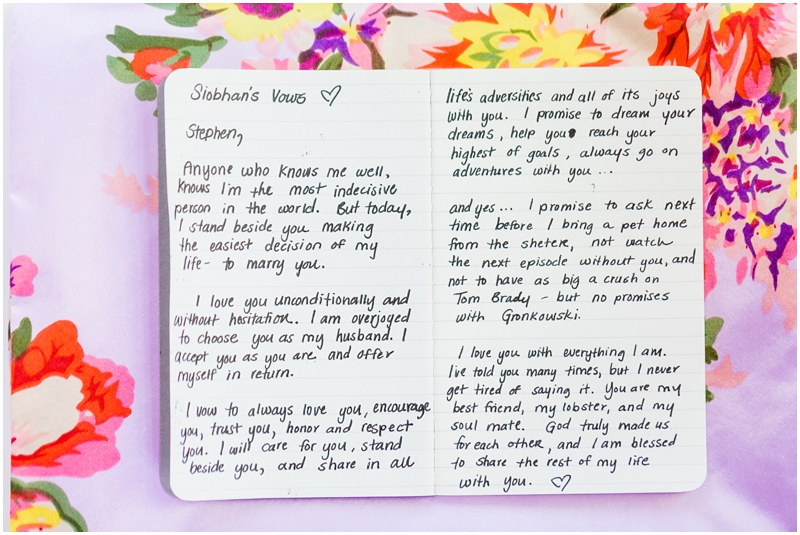 Siobhan's Vows ♡
Stephen,
Anyone who knows me well,
knows I'm the most indecisive
person in the world. But today,
I stand beside you making
the easiest decision of my
life- to marry you.
I love you unconditionally and
without hesitation. I am overjoyed
to choose you as my husband. I
accept you as you are and offer
myself in return.
I vow to always love you, encourage
you, trust you, honor and respect
you. I will care for you, stand
beside you, and share in all
life's adversities and all of its joys
with you. I promise to dream your
dreams, help you reach your
highest of goals, always go on
adventures with you...
and yes... I promise to ask next
time before I bring a pet home
from the shelter, not watch
the next episode without you, and
not to have as big a crush on
Tom Brady - but no promises
with Gronkowski.
I love you with everything I am.
I've told you many times, but I never
get tired of saying it. You are my
best friend, my lobster, and my
soul mate. God truly made us
for each other, and I am blessed
to share the rest of my life
with you. ♡